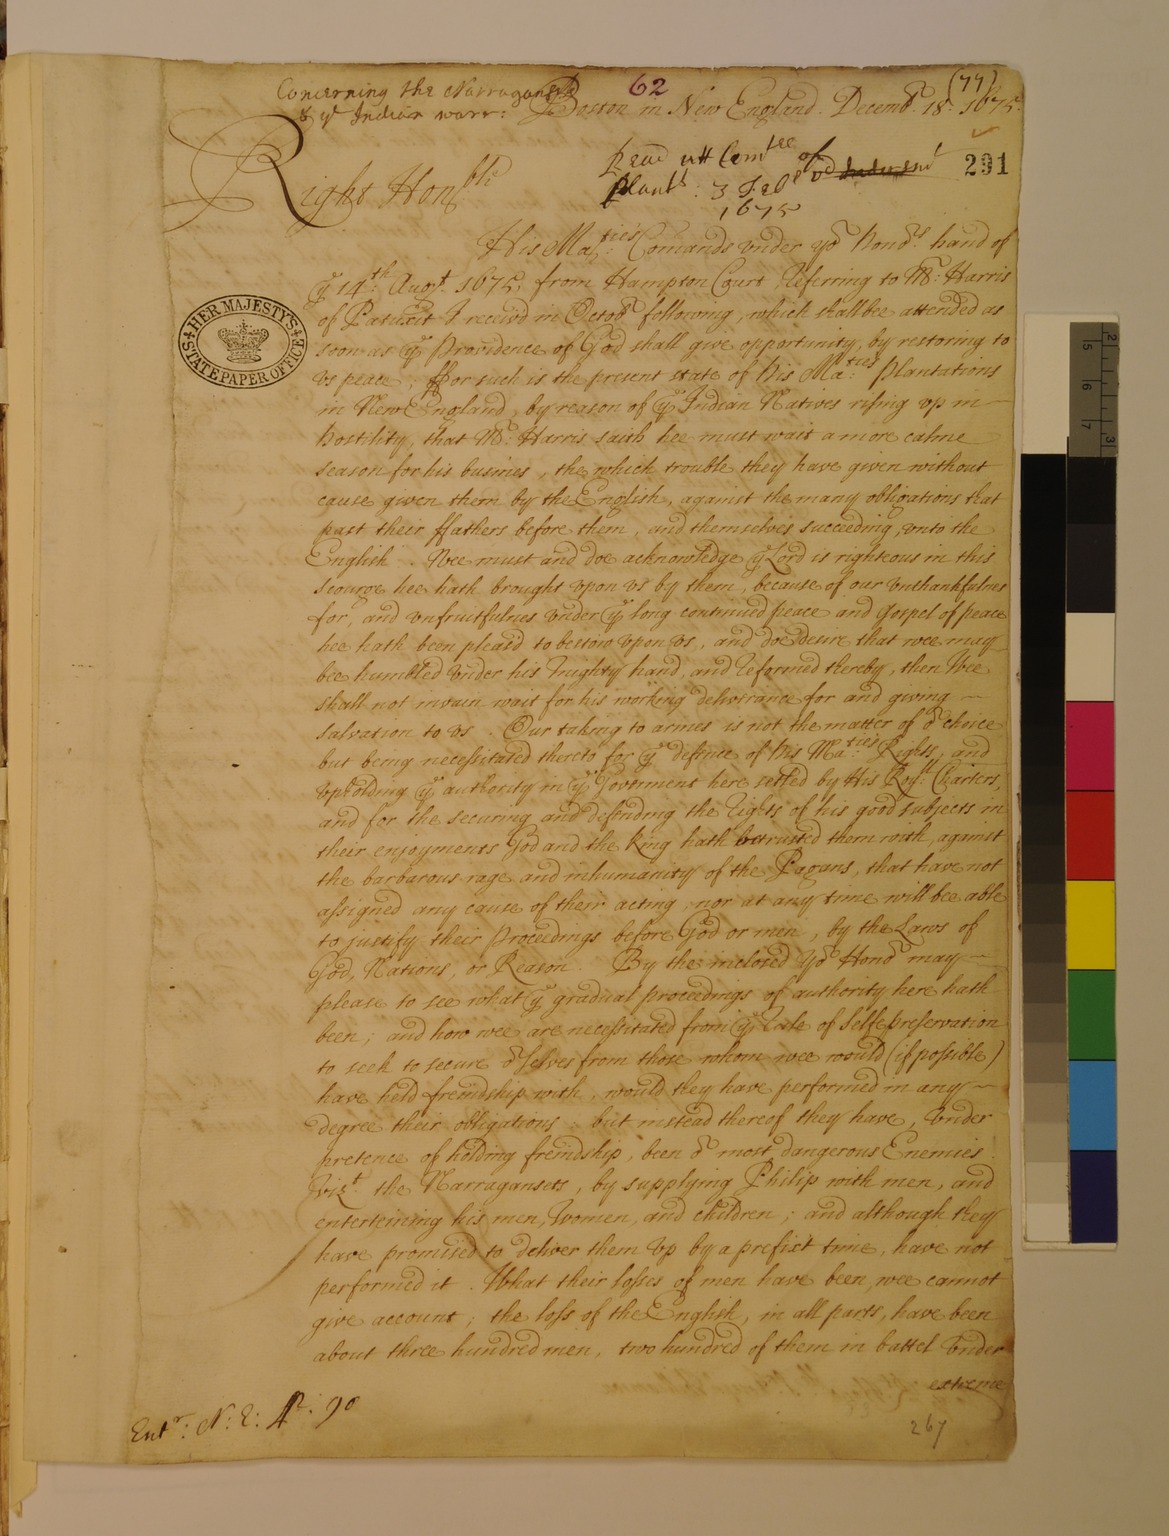 Concerning the Narragansets
& yᵉ Indian warr:
62
(77)
Boston in New England. Decembʳ 18: 1675.
Read att Comᵗᵉᵉ of
Plantˢ: 3 Feb
1675
291
Right Honᵇˡᵉ
HER MAJESTY'S
STATE PAPER OFFICE
His Maᵗⁱᵉˢ: Comands vnder yoʳ honoʳˢ hand of
yᵉ 14ᵗʰ: Augˢᵗ. 1675. from Hampton Court referring to Mʳ: Harris
of Patuxit I receivd in Octobʳ following, which shall bee attended as
soon as yᵉ Providence of God shall give opportunity, by restoring to
vs peace; ffor such is the present state of his Maᵗⁱᵉˢ: Plantations
in New England, by reason of yᵉ Indian Natives rising vp in
hostility, that Mʳ: Harris saith hee must wait a more calme
season for his busines, the which trouble they have given without
cause given them by the English, against the many obligations that
past their ffathers before them, and themselves succeeding, vnto the
English. Wee must and doe acknowledge yᵉ Lord is righteous in this
scourge hee hath brought vpon vs by them, because of our vnthankfulnes
for, and vnfruitfulnes vnder yᵉ long continued peace and Gospel of peace
hee hath been pleas'd to bestow vpon vs, and doe desire that wee may
bee humbled vnder his mighty hand, and reformed thereby, then Wee
shall not in vain wait for his working deliverance for and giving
salvation to vs. Our taking to armes is not the matter of oʳ choice
but being necessitated thereto for yᵉ defence of his Maᵗⁱᵉˢ: Rights, and
vpholding yᵉ authority in yᵉ Goverment here setled by His Royˡˡ Charters,
and for the securing and defending the rights of his good subjects in
their enjoyments God and the King hath betrusted them with, against
the barbarous rage and inhumanity of the Pagans, that have not
assigned any cause of their acting, nor at any time will bee able
to justify their proceedings before God or men, by the Laws of
God, Nations, or Reason. By the inclosed Yoʳ Honoʳ may
please to see what yᵉ gradual proceedings of authority here hath
been; and how wee are necessitated from yᵉ rule of selfe preservation
to seek to secure oʳ selves from those whom wee would (if possible)
have held freindship with, would they have performed in any
degree their obligations: but instead thereof they have, vnder
pretence of holding freindship, been oʳ most dangerous Enemies.
vizᵗ. the Narragansets, by supplying Philip with men, and
enterteining his men, women, and children; and although they
have promised to deliver them vp by a prefixt time, have not
performed it. What their losses of men have been, wee cannot
give account; the loss of the English, in all parts, have been
about three hundred men, two hundred of them in battel vnder
extreme
Entʳ: N: E: Aᵖ: 90
267